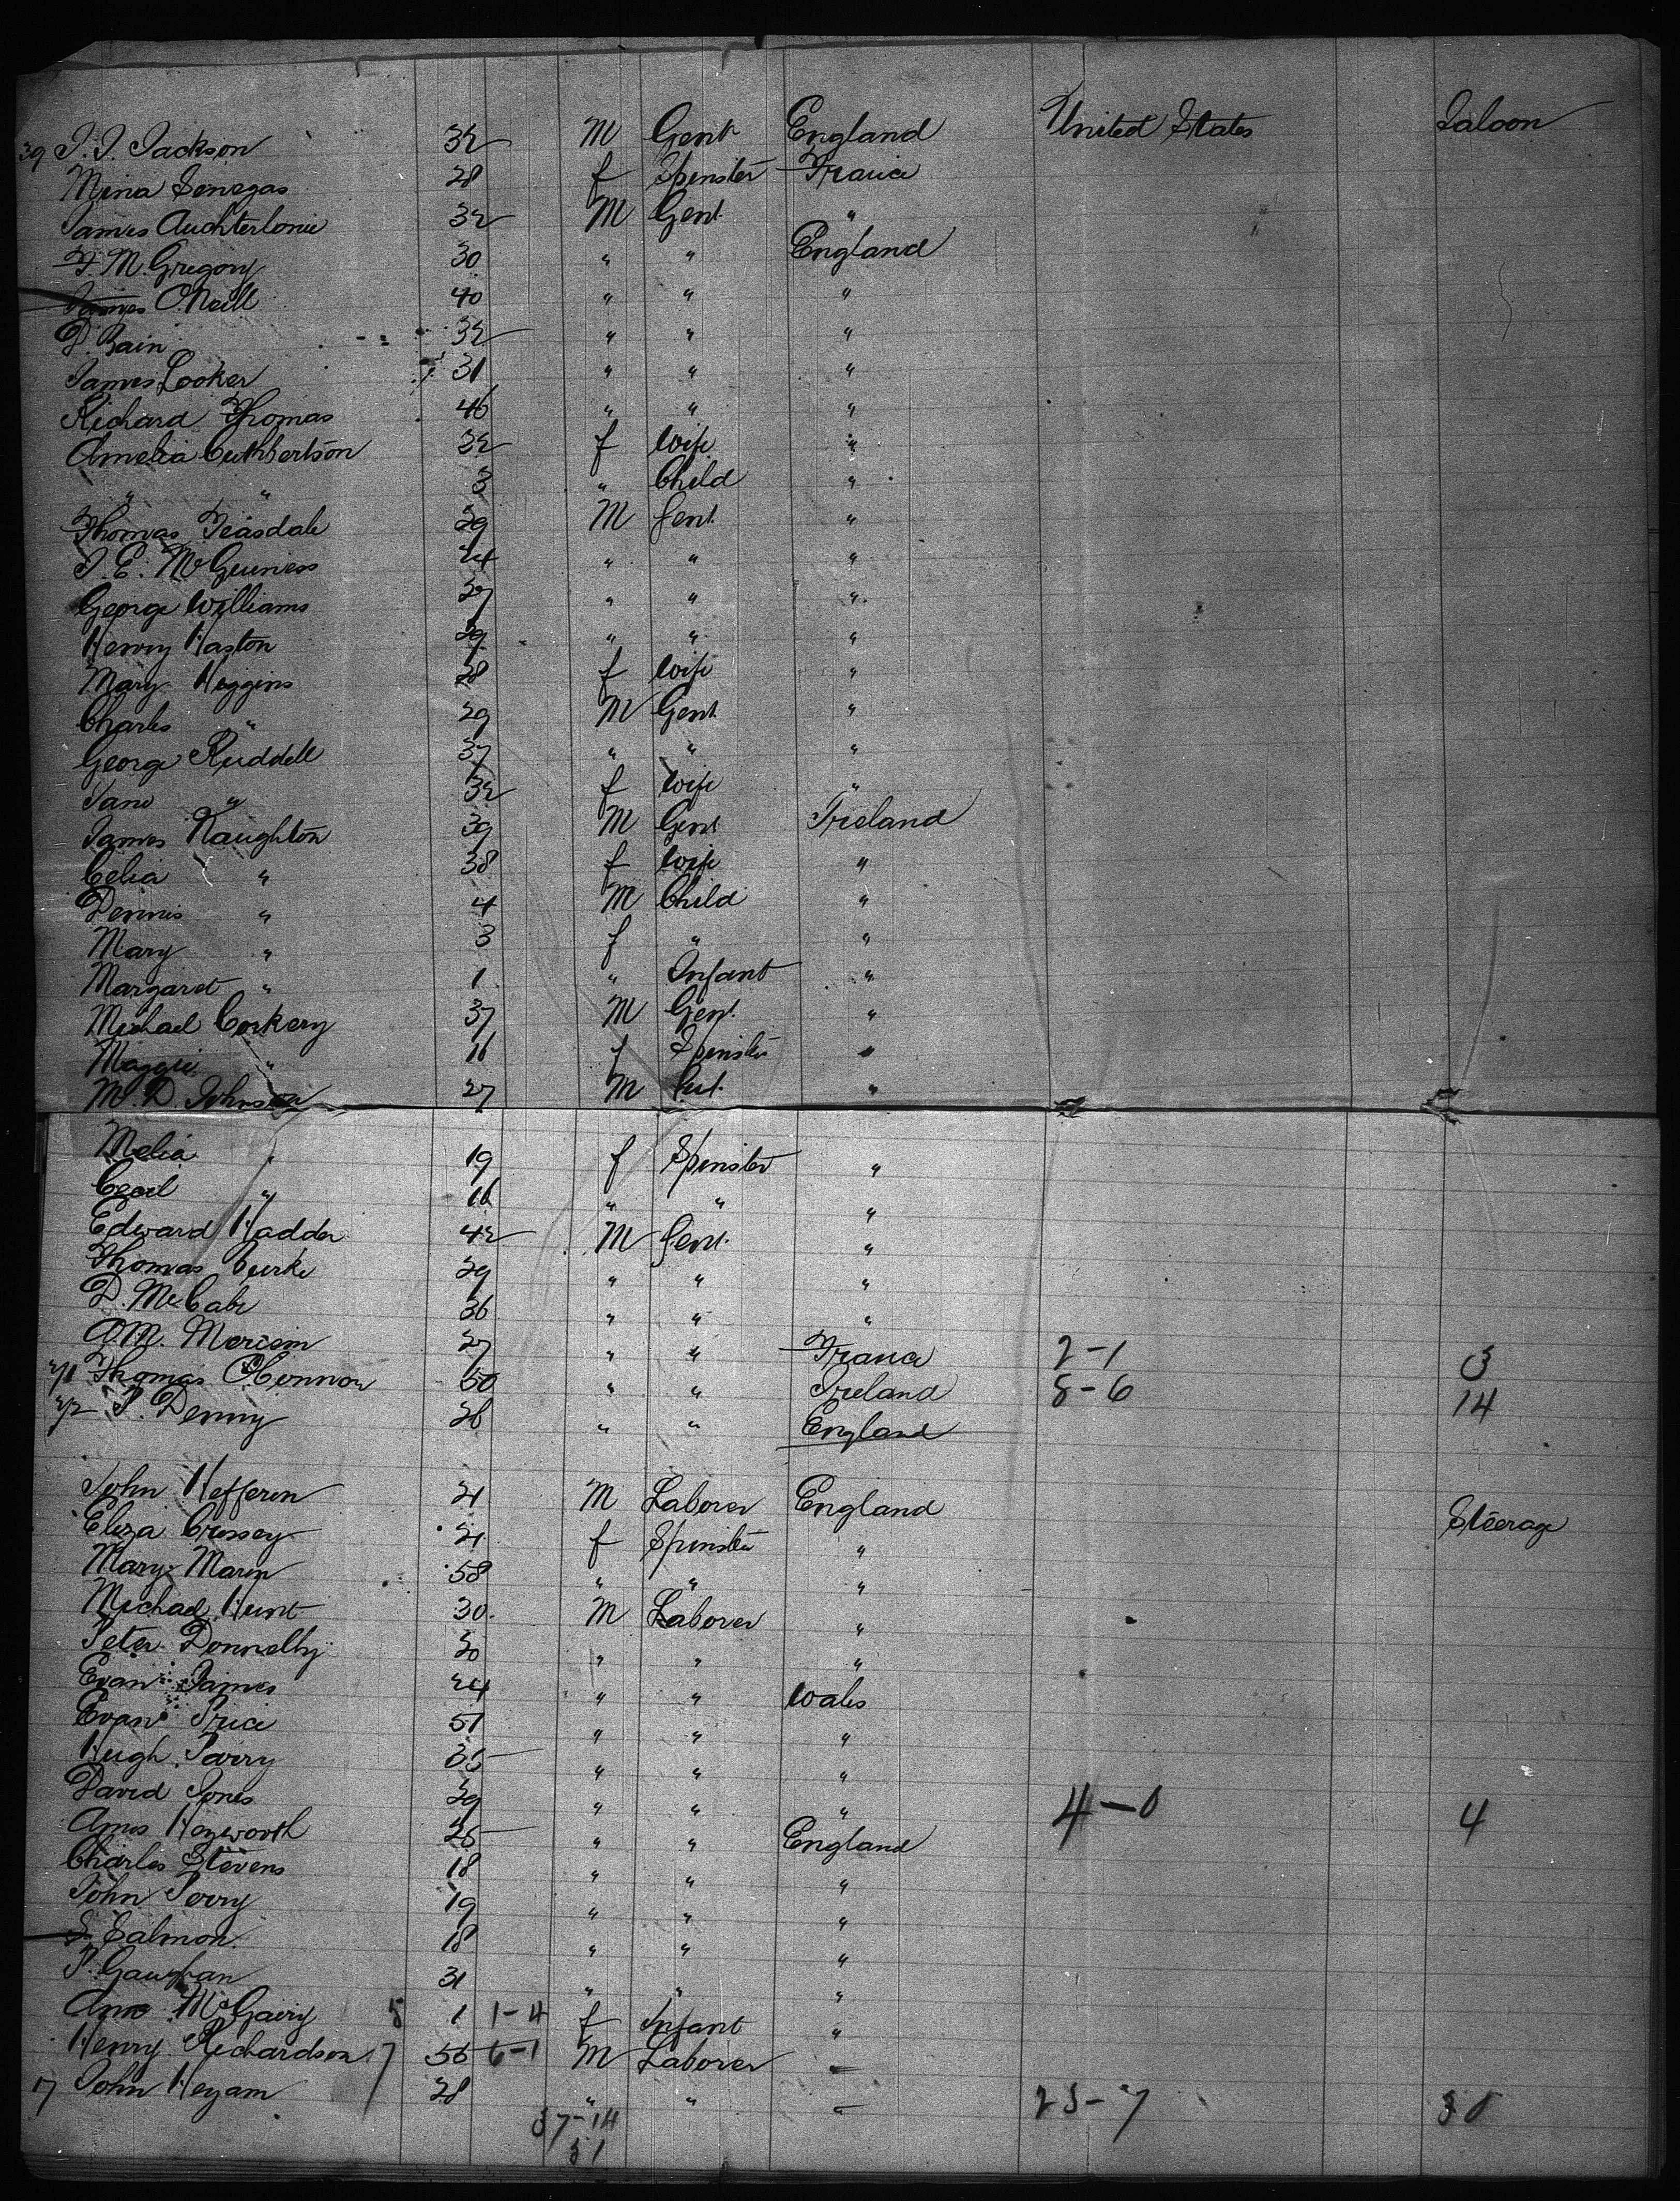 39 T. J. Jackson 32 M Gent England United States Saloon
Mina Senegas 28 f Spinster France
James Auchterlonie 32 M Gent. "
F. M. Gregory 30 " " England
James O'Neill 40 " " "
D. Bain 32 " " "
James Looker 31 " " "
Richard Thomas 46 " " "
Amelia Cuthbertson 32 f Wife "
" " 3 " Child "
Thomas Teasdale 29 M Gent. "
J. E. McGuiness 24 " " "
George Williams 27 " " "
Henry Haston 29 " " "
Mary Heggins 28 f Wife "
Charles " 29 M Gent. "
George Ruddell 37 " " "
Jane " 32 f Wife "
James Naughton 39 M Gent Ireland
Celia " 38 f Wife "
Dennis " 4 M Child "
Mary " 3 f " "
Margaret " 1 " Infant "
Michael Corkery 37 M Gent. "
Maggie " 16 f Spinster "
M. D. Johnson 27 M "
Melia " 19 f Spinster "
Cecil " 16 " " "
Edward Hadder 42 M Gent. "
Thomas Burke 29 " " "
D. McCabe 36 " " "
A.M. 27 " " France 2-1 3
71 Thomas O'Connor 50 " " Ireland 8-6 14
72 P. Denny 26 " " England
John Hefferen 21 M Laborer England Steerage
Eliza Crossey 21 f Spinster "
Mary Marin 58 " " "
Michael Hunt 30. M Laborer "
Peter Donnelly 30 " " "
Evan James 24 " " Wales
Evan Price 51 " " "
Hugh Parry 35 " " "
David Jones 29 " " " 4-0 4
Amos Heyworth 25 " " England
Charles Stevens 18 " " "
John Perry 19 " " "
S. Salmon 18 " " "
P. Gaughan 31 " " "
Ann McGairy 5 1 1-4 f Infant "
Henry Richardson 7 55 6-1 M Laborer "
17 John Heyam 28 " " " 23-7 30
37-14
51